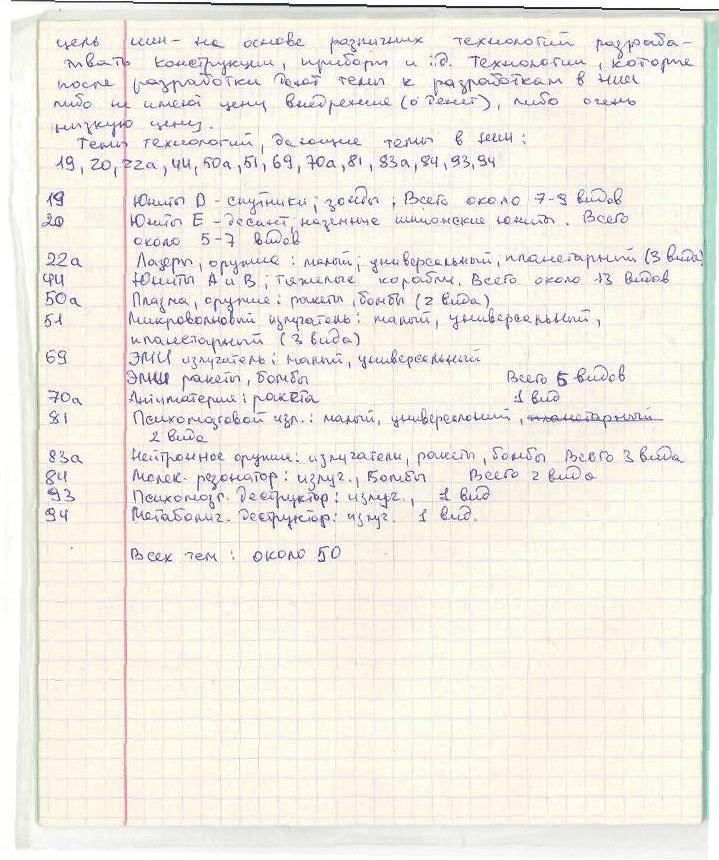 цель нии - на основе различных технологий разраба-
тывать конструкции, приборы и т.д. Технологии, которые
после разработки дают темы к разработкам в нии
либо не имеют цену внедрение (0 денег), либо очень
низкую цену.
Темы технологий, дающие темы в нии:
19, 20, 22а, 44, 50а, 51, 69, 70а, 81, 83а, 84, 93, 94
19 Юниты D - спутники; зонды. Всего около 7-9 видов
20 Юниты E - десант; наземные шпионские юниты. Всего
около 5-7 видов
22а Лазеры, оружие: малый; универсальный, планетарный (3 вида)
44 Юниты А и В; тяжелые корабли. Всего около 13 видов
50а Плазма, оружие: ракеты, бомбы (2 вида)
51 Микроволновый излучатель: малый, универсальный,
планетарный (3 вида)
69 ЭМИ излучатель: малый, универсальный
ЭМИ ракеты, бомбы Всего 5 видов
70а Антиматерия: ракета 1 вид
81 Психомозговой изл.: малый, универсальный, планетарный
2 вида
83а Нейтронное оружие: излучатели, ракеты, бомбы Всего 3 вида
84 Молек. резонатор: излуч., Бомбы Всего 2 вида
93 Психомозг. деструктор: излуч., 1 вид
94 Метаболич. деструктор: излуч. 1 вид.
Всех тем: около 50